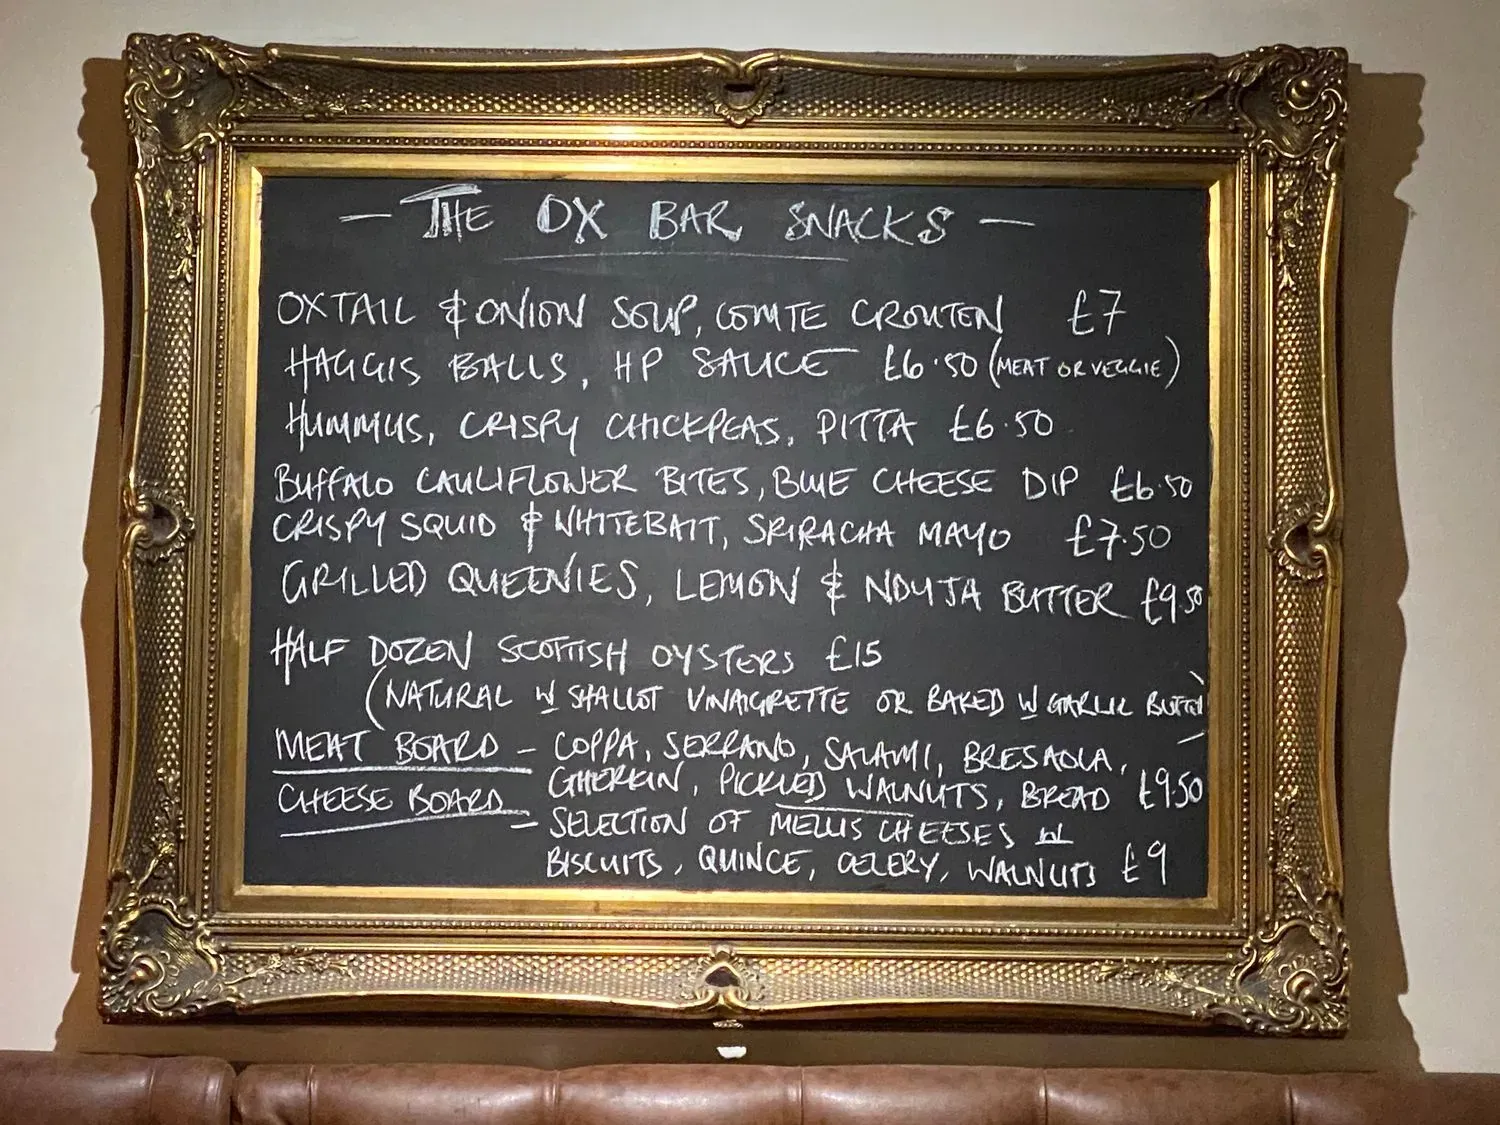 — THE OX BAR SNACKS —
OXTAIL & ONION SOUP, COMTE CROUTON £7
HAGGIS BALLS, HP SAUCE £6.50 (MEAT OR VEGGIE)
HUMMUS, CRISPY CHICKPEAS, PITTA £6.50
BUFFALO CAULIFLOWER BITES, BLUE CHEESE DIP £6.50
CRISPY SQUID & WHITEBAIT, SRIRACHA MAYO £7.50
GRILLED QUEENIES, LEMON & NDUJA BUTTER £9.50
HALF DOZEN SCOTTISH OYSTERS £15
(NATURAL W SHALLOT VINAIGRETTE OR BAKED W GARLIC BUTTER)
MEAT BOARD - COPPA, SERRANO, SALAMI, BRESAOLA,
GHERKIN, PICKLED WALNUTS, BREAD £9.50
CHEESE BOARD
- SELECTION OF MELLIS CHEESES W
BISCUITS, QUINCE, CELERY, WALNUTS £9